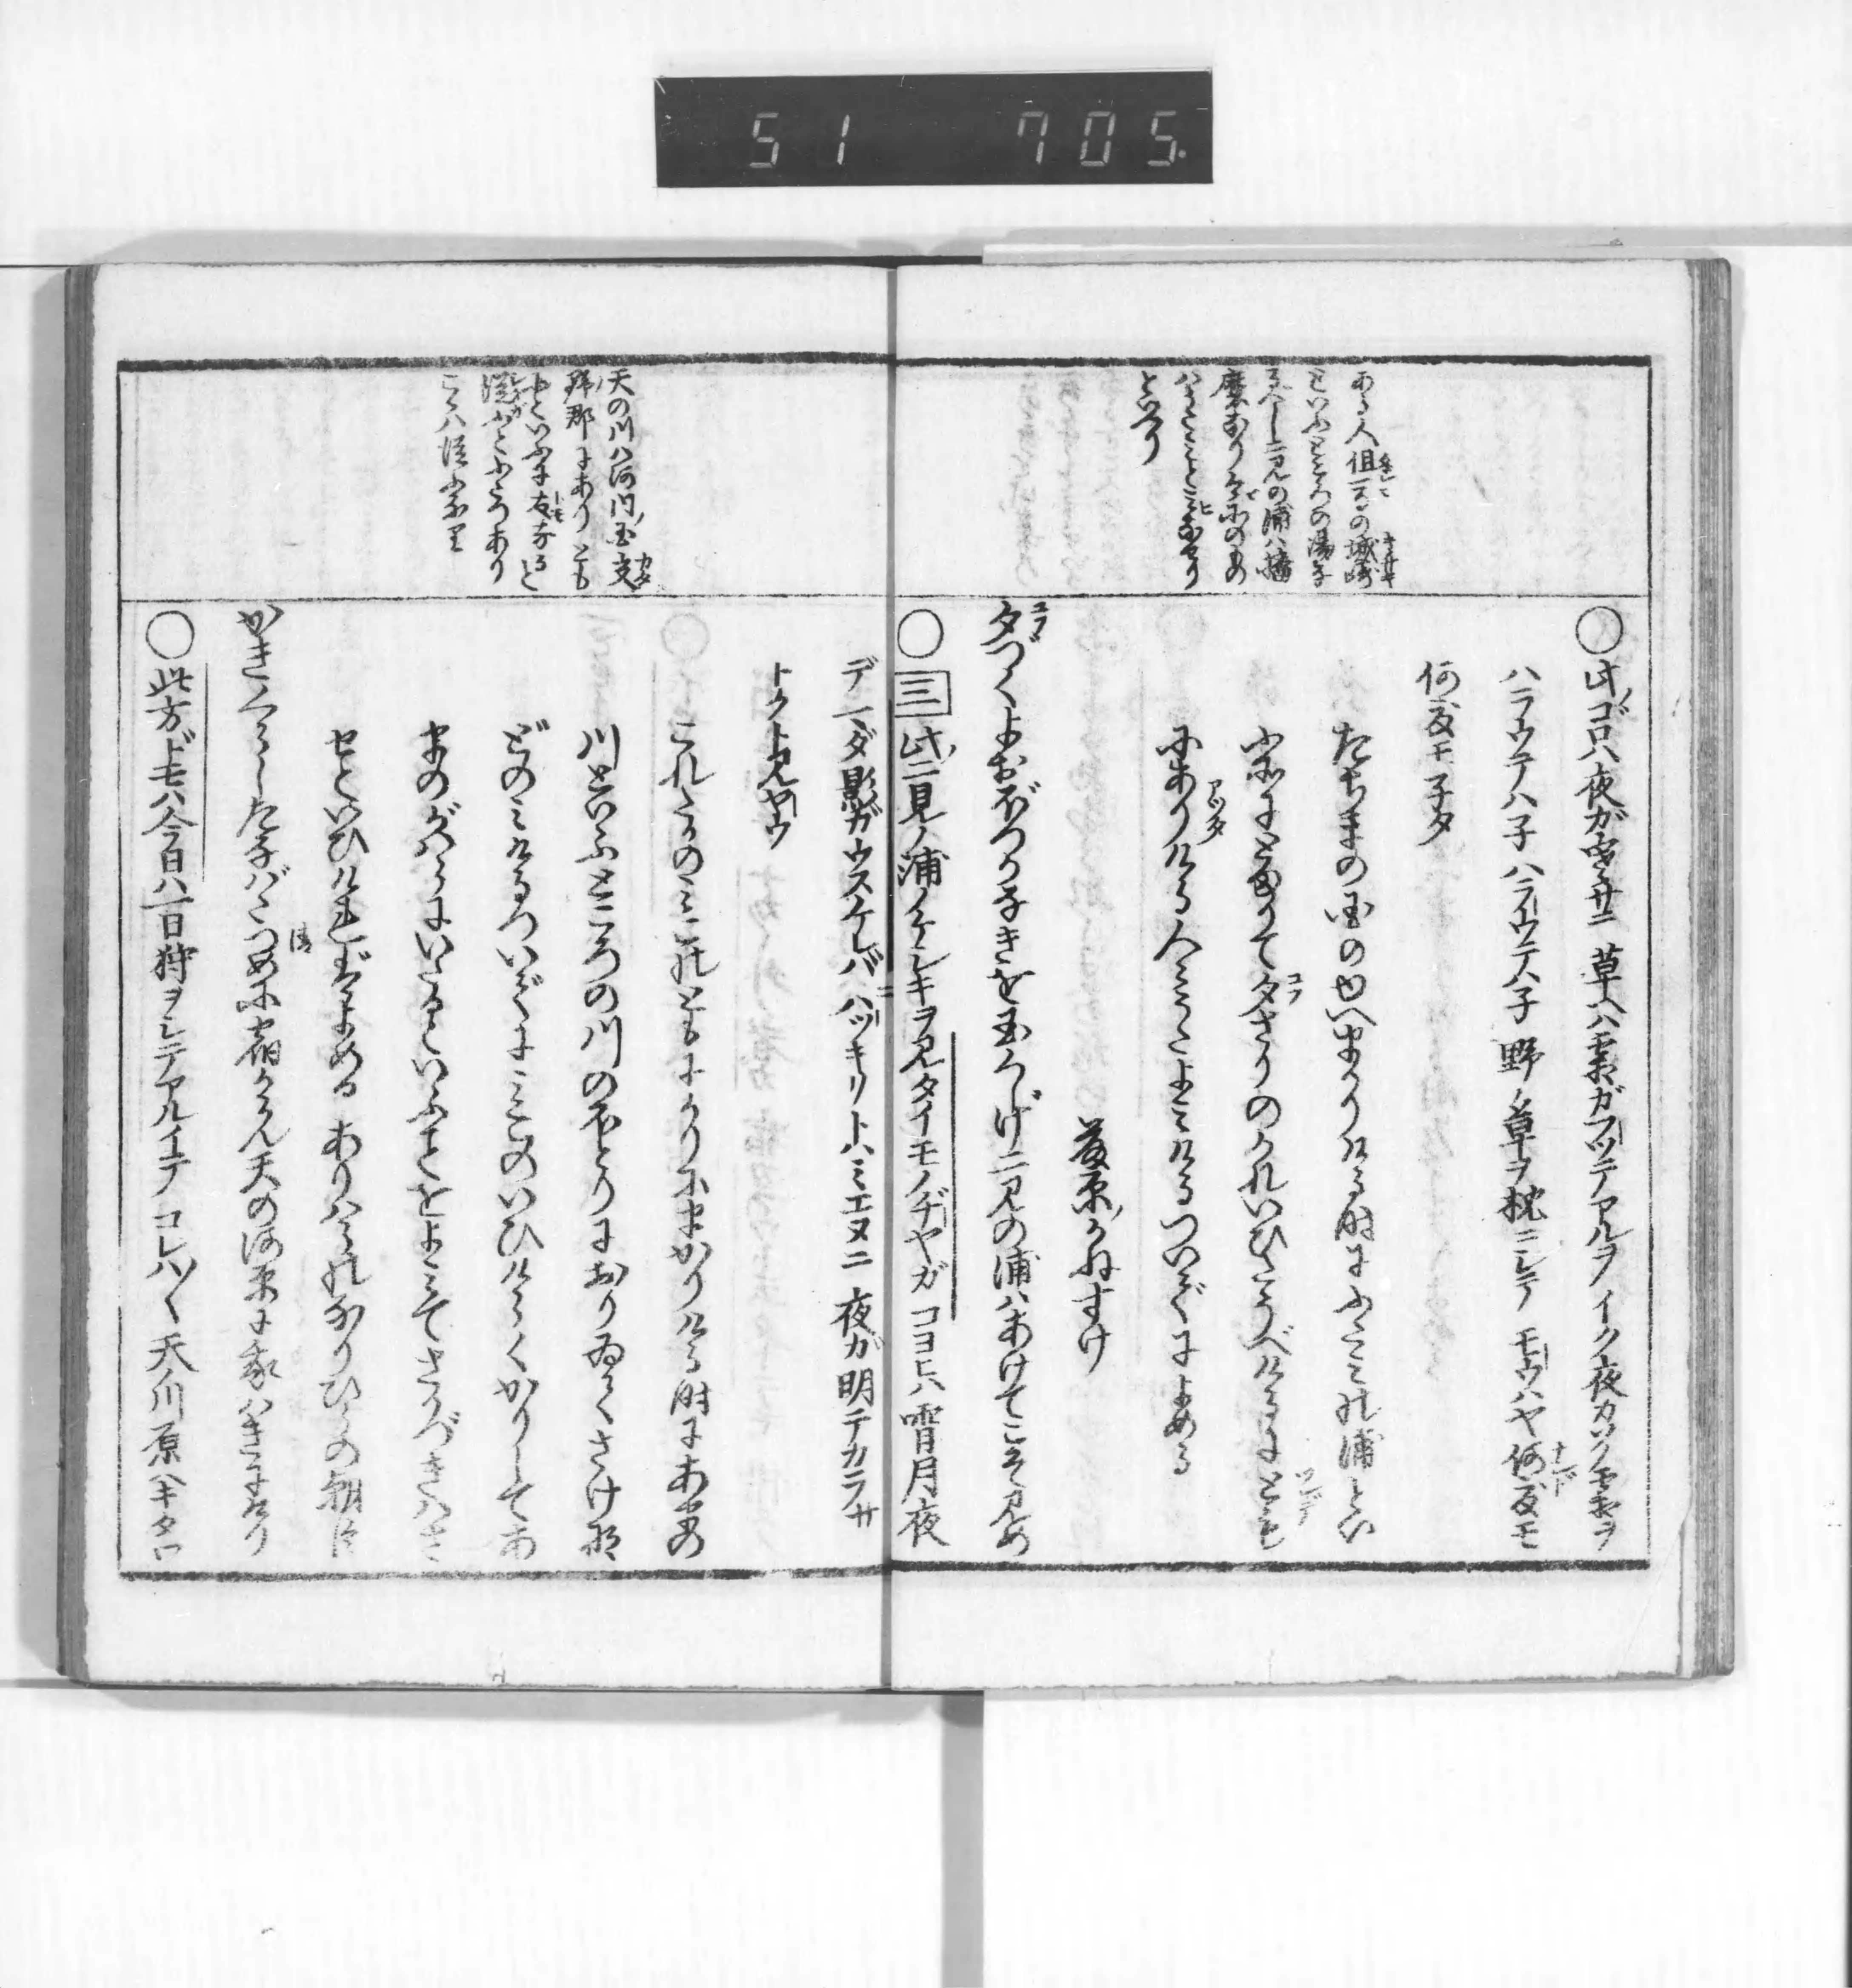 51 705.
ある人但馬の城崎
といふところの湯な
るへし二見の浦ハ播
磨なり
といへり
○此ゴロハ夜ガ寒サニ 草ハ霜ガフツテアルヲ イク夜カソノ霜ヲ
ハラウテハ子ハラウテハ子 野ノ草ヲ枕ニシテ モウハヤ何度モ
何度モ子タ
たぢまの国のゆへまかりける時にふたみの浦といふ
所にとまりて夕さりのかれいひたうべけるにともに
ありける人々うたよみけるついでによめる
藤原かねすけ
夕づくよおぼつかなきを玉くしげ二見の浦ハあけてこそ見め
○三 此二見ノ浦ノケシキヲ見タイモノヂヤガ コヨヒハ宵月夜
デ マダ影ガウスケレバ ハツキリトハミエヌニ 夜ガ明テカラサ
トクト見ヤウ
天の川ハ河内ノ国交
野郡にありとも
こゝハ
これたかのみこのともにかりにまかりける時にあまの
川といふところの川のほとりにおりゐてさけな
どのみけるついでにみこのいひけらくかりしてあ
まのがハらにいたるといふことをよみてさかづきハさ
せといひければよめる ありハらのなりひらの朝臣
かりくらしたなばたつめに宿からん天の河原に我ハきにけり
○此方ドモハ今日ハ一日狩ヲシテアルイテ コレハ〳〵 天ノ川原ヘキタワ